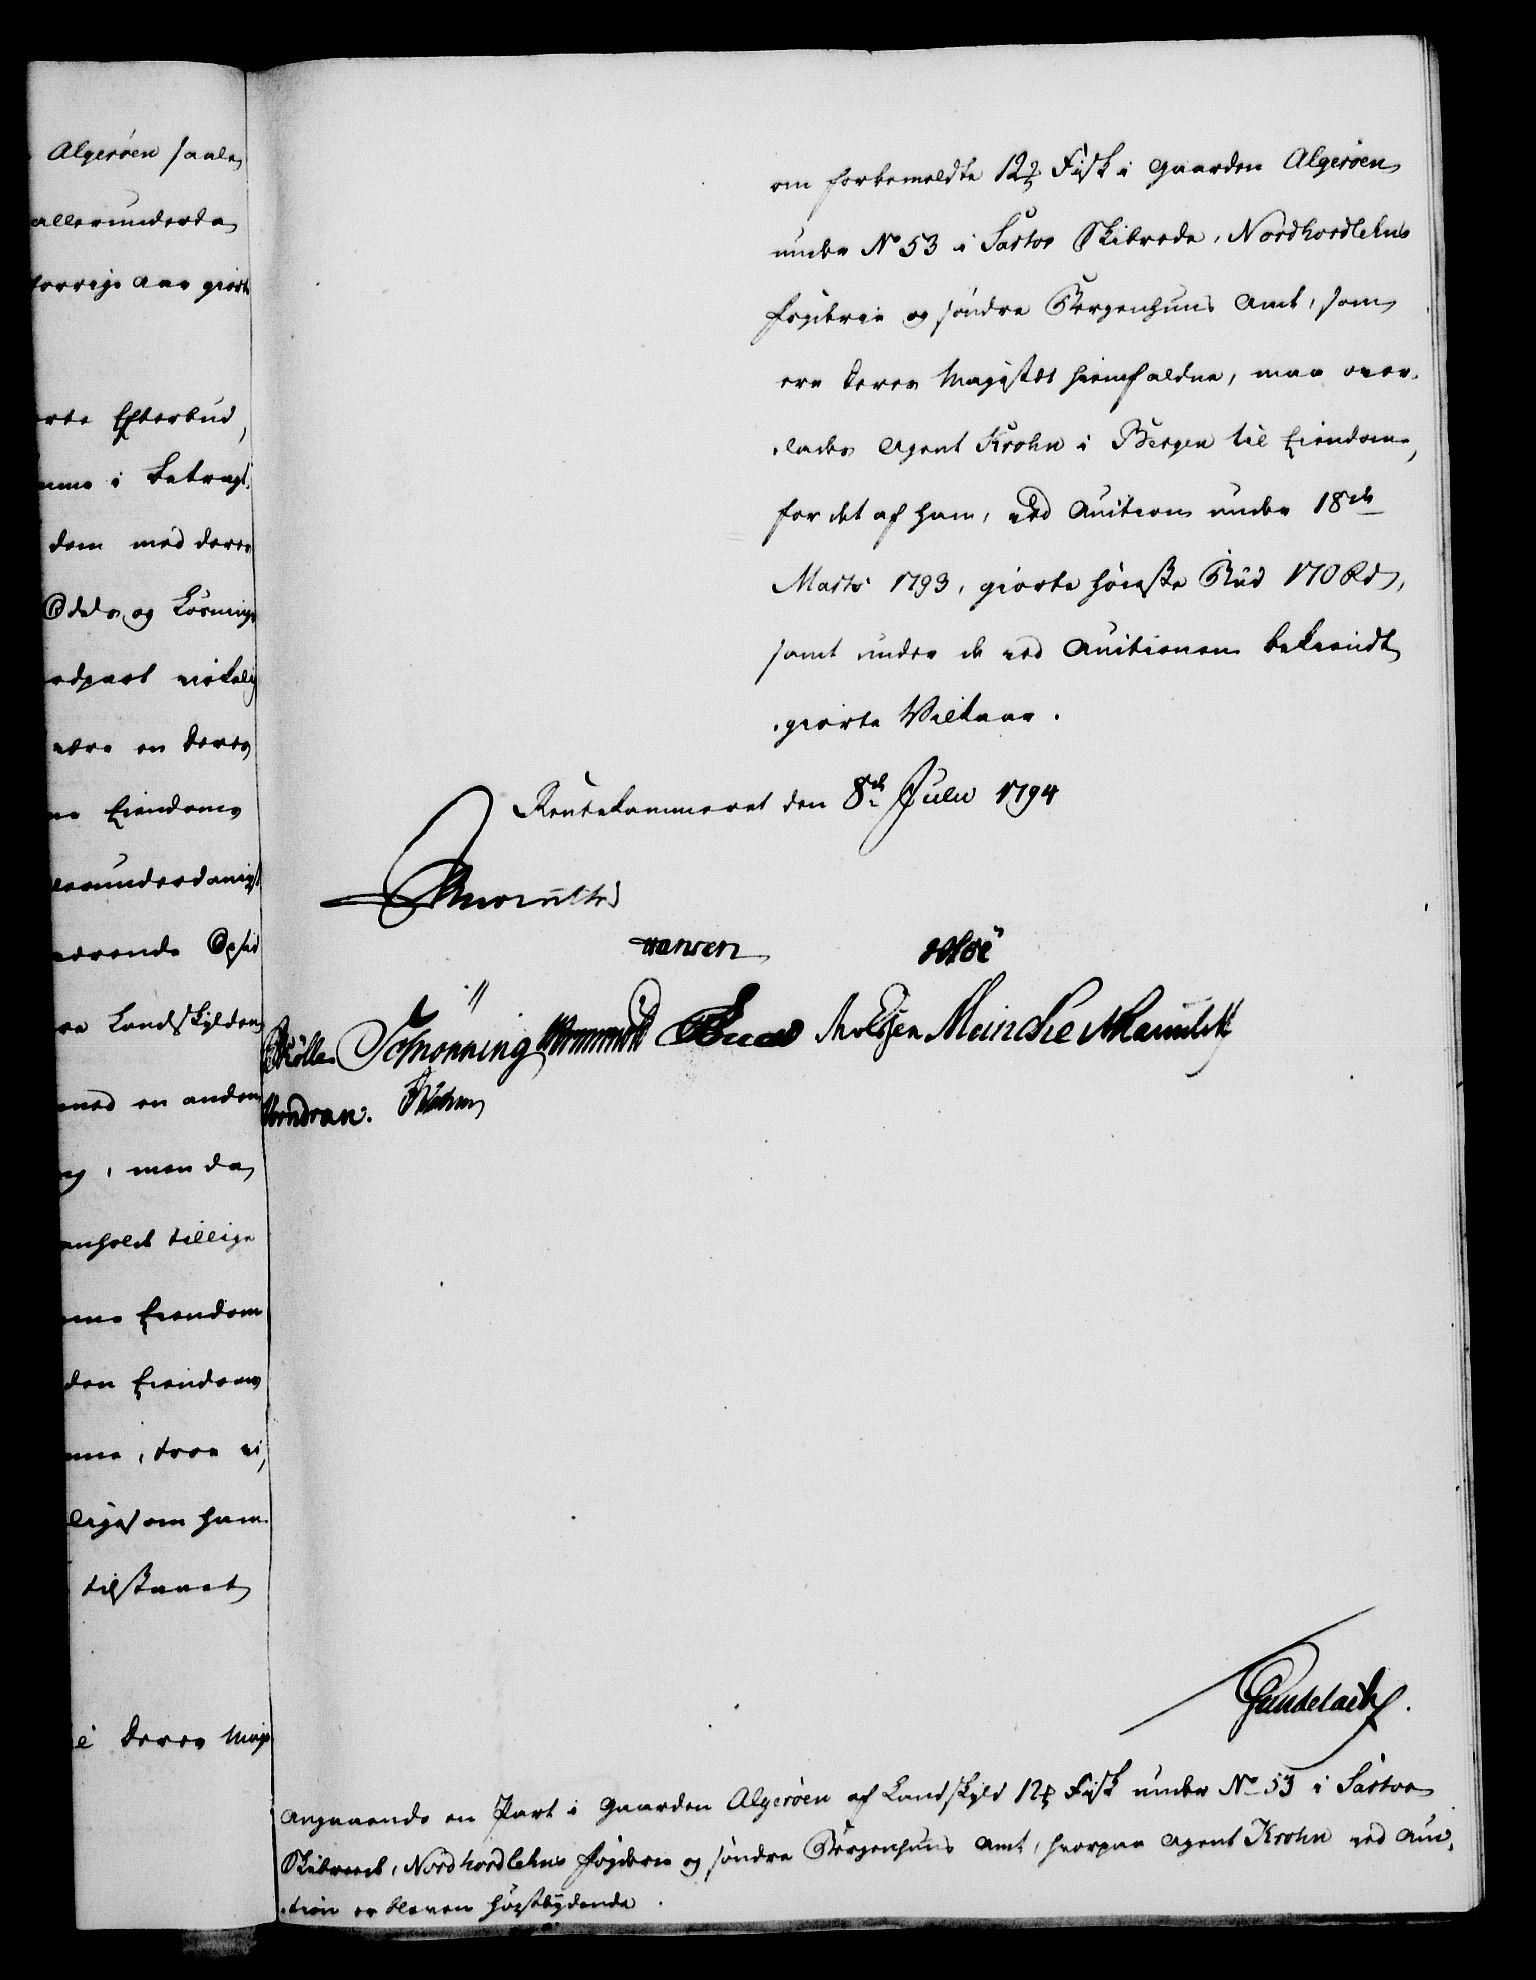 Algerøen saale
allerunderda
forrige Aar giorte
Efterbud,
i Betragt
dem med deres
Odels og Løsnings
virkelig
være en Deres
Eiendoms
lerunderdanigst
værende Opsid
Landskylden
med en anden
, men da
anholdt tillige
Eiendom
den Eiendoms
, troe vi,
ligesom ham
tilstaaet
Deres Maj
om forbemeldte 12 ℔ Fisk i Gaarden Algerøen
under No 53 i Sartor Skibrede, Nordhordlehns
Fogderie og søndre Bergenhuus Amt, som
ere Deres Majestæt hiemfaldne, maa over-
lades Agent Krohn i Bergen til Eiendom,
for det af ham, ved Auction under 18de
Marts 1793, giorte høieste Bud 170 Rd,
samt under de ved Auctionen bekiendt
giorte Vilkaar.
Rentekammeret den 8de Julii 1794
Hansen
Schønning
Meinche
Vorndran.
Gundelach.
Angaaende en Part i Gaarden Algerøen af Landskyld 12 ℔ Fisk under No 53 i Sartor
Skibrede, Nordhordlehns Fogderie og søndre Bergenhuus Amt, hvorpaa Agent Krohn ved Auc-
tion er bleven høistbydende.